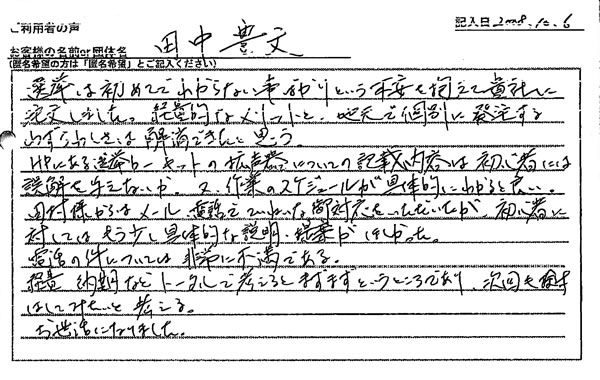 ご利用者の声
記入日 2008.10.6
お客様の名前or団体名
(匿名希望の方は「匿名希望」とご記入ください)
田中豊文
選挙は初めてでわからない事ばかりという不安を抱えて貴社に
注文しました。経費的なメリットと、地元で個別に発注する
わずらわしさは解消できたと思う。
HPにある選挙カーキットの拡声器についての記載内容は初心者には
誤解を与えないか。又、作業のスケジュールが具体的にわかると良い。
田村様からはメール、電話でていねいな御対応をいただいたが、初心者に
対してはもう少し具体的な説明・提案がほしかった。
の件については非常に不満である。
経費、納期などトータルで考えるとまずまずというところであり、次回も
はしてみたいと考える。
お世話になりました。